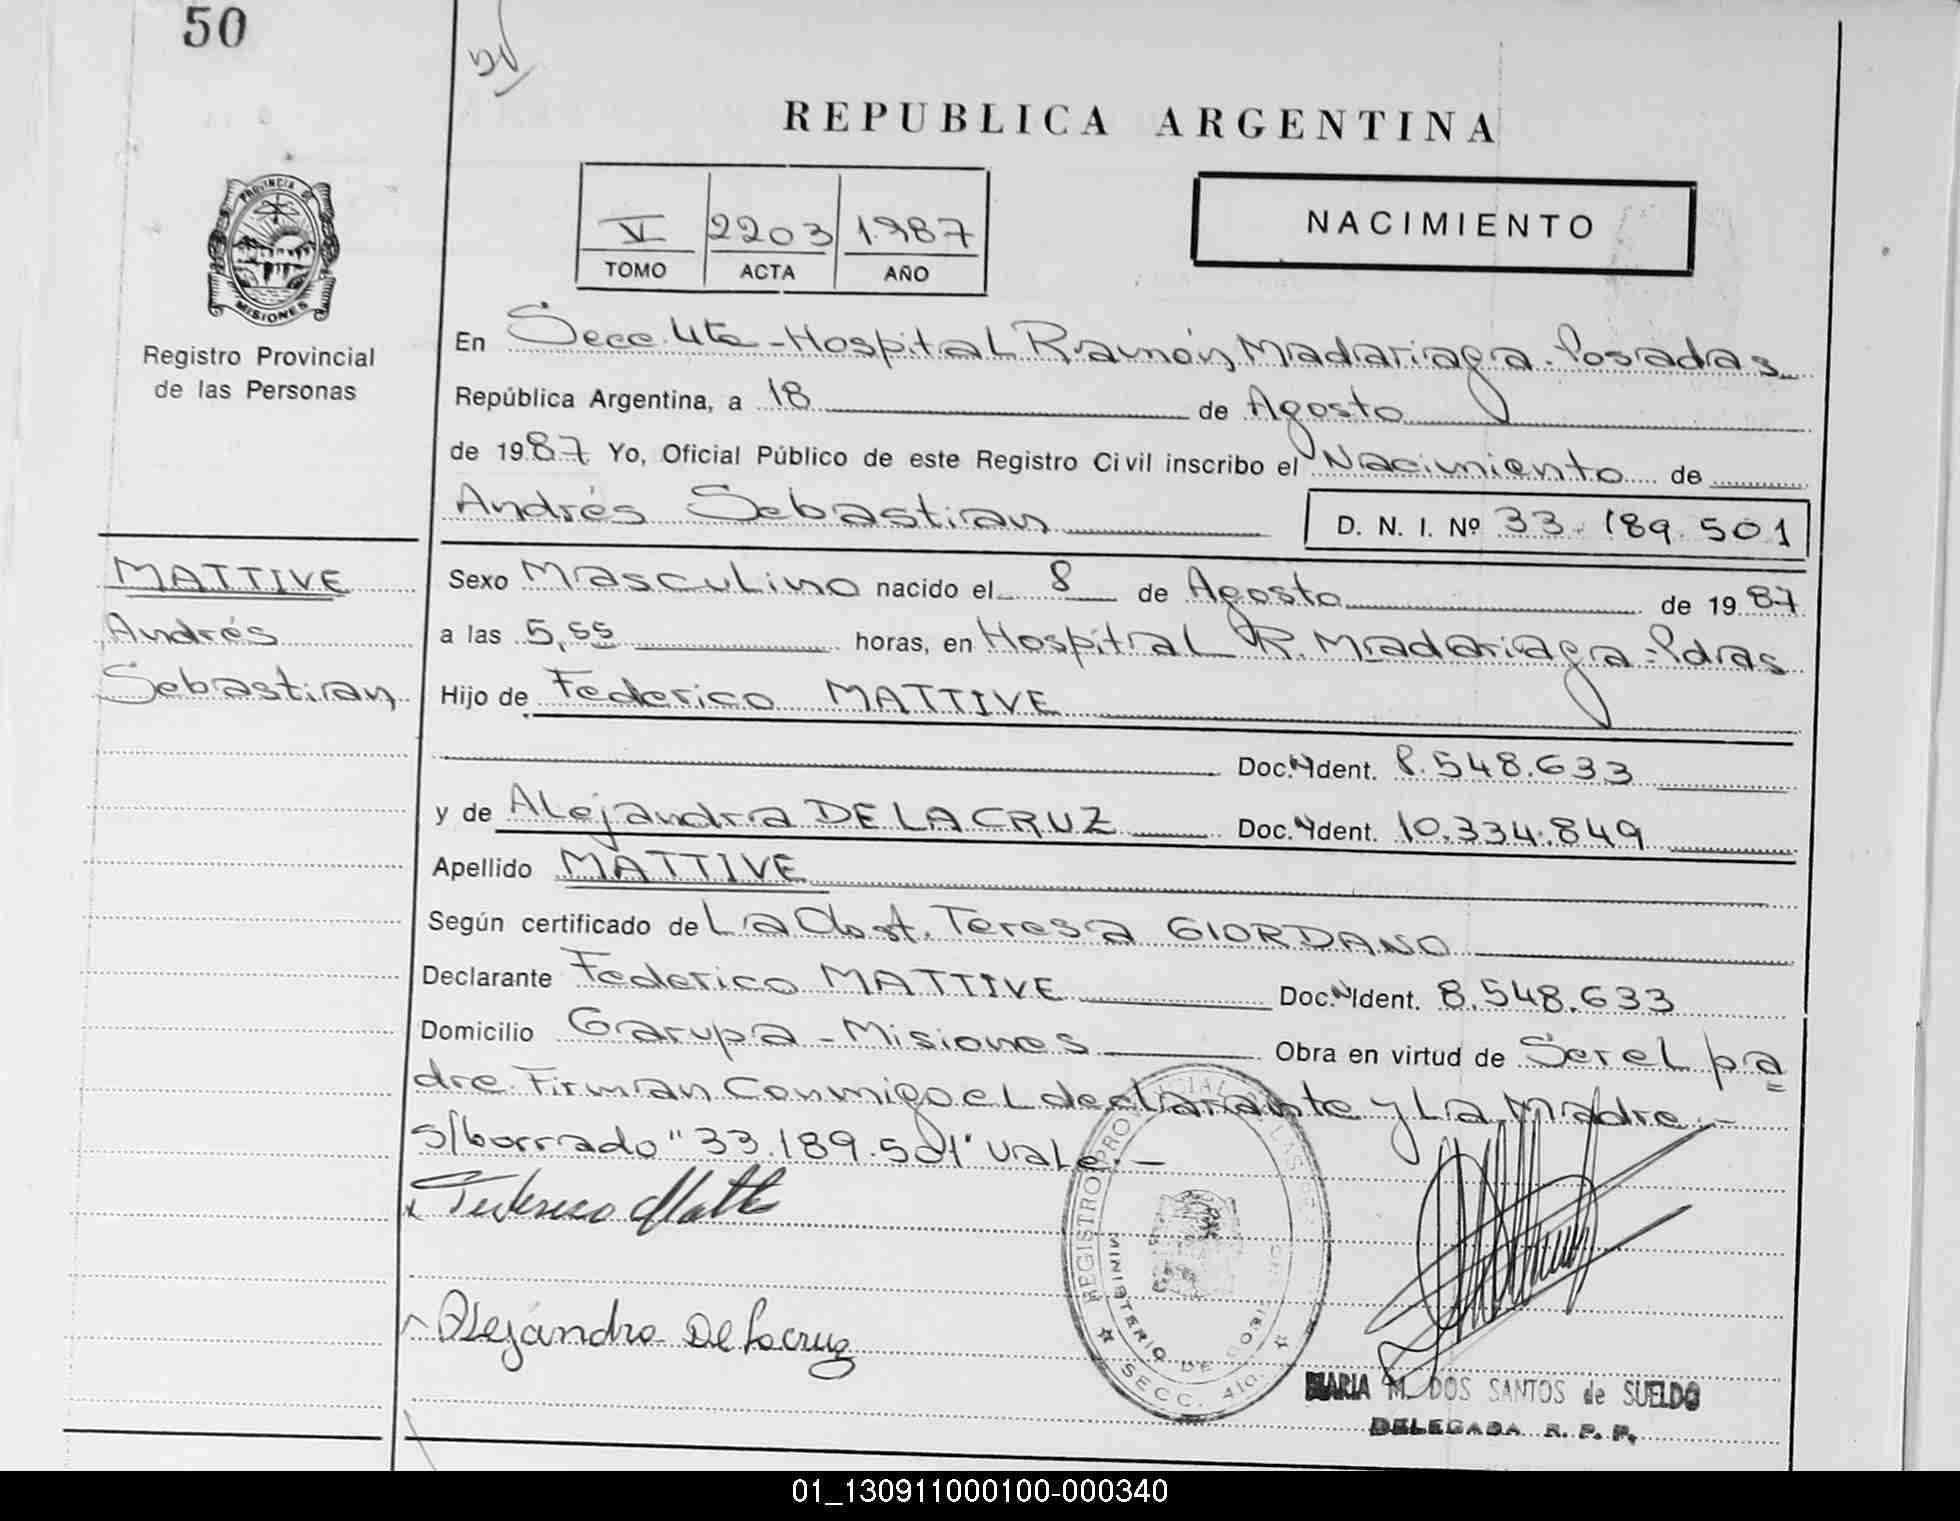 50
REPUBLICA ARGENTINA
PROVINCIA DE
MISIONES
Registro Provincial
de las Personas
VI 2203 1987
TOMO ACTA AÑO
NACIMIENTO
En Secc. 4ta - Hospital Ramón Madariaga - Posadas
República Argentina, a 18 de Agosto
de 1987 Yo, Oficial Público de este Registro Civil inscribo el Nacimiento de
Andrés Sebastian D. N. I. Nº 33.189.501
MATTIVE
Andrés
Sebastian
Sexo Masculino nacido el 8 de Agosto de 1987
a las 5,55 horas, en Hospital R. Madariaga - Pdas
Hijo de Federico MATTIVE
Doc. Ident. 8.548.633
y de Alejandra DE LA CRUZ Doc. Ident. 10.334.849
Apellido MATTIVE
Según certificado de La Obst. Teresa GIORDANO
Declarante Federico MATTIVE Doc. Ident. 8.548.633
Domicilio Garupa - Misiones Obra en virtud de Ser el pa
dre. Firman Conmigo el declarante y La Madre.-
s/borrado "33.189.501" vale.-
Federico Matt
Alejandra De la cruz
REGISTRO PROVINCIAL DE LAS
MINISTERIO DE GOBIERNO
SECC. 4ta.
MARIA M. DOS SANTOS de SUELDO
DELEGADA R. P. P.
01_130911000100-000340